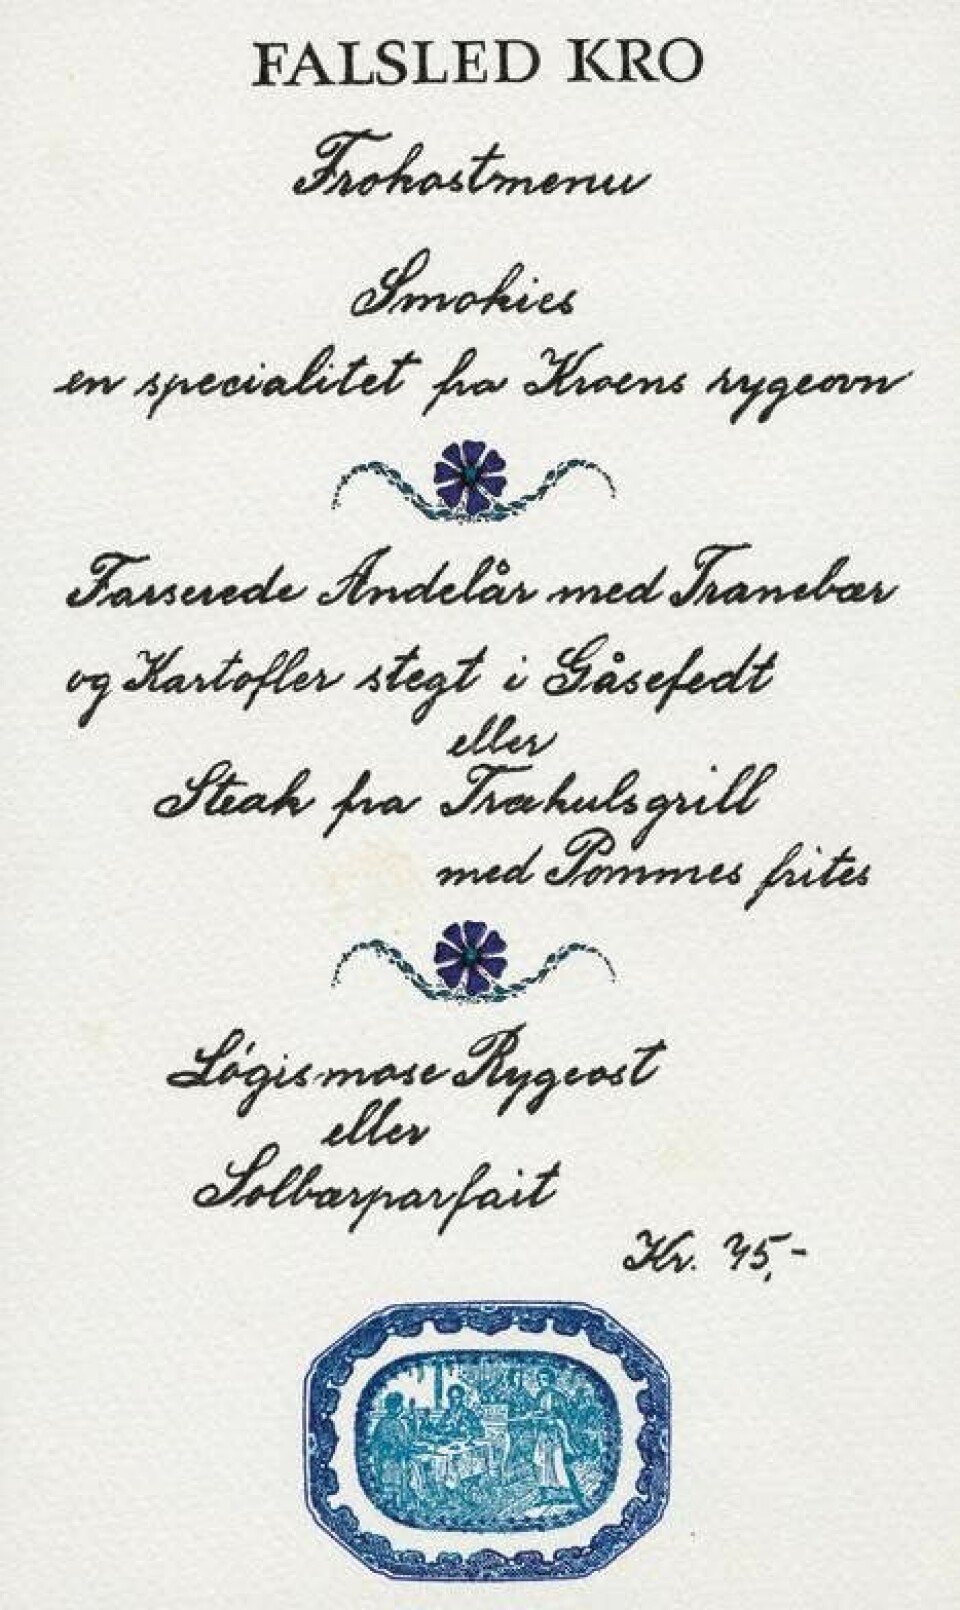 FALSLED KRO
Frokostmenu
Smokies
en specialitet fra Kroens rygeovn
Farserede Andelår med Tranebær
og Kartofler stegt i Gåsefedt
eller
Steak fra Trækulsgrill
med Pommes frites
Løgismose Rygeost
eller
Solbærparfait
Kr. 45,-